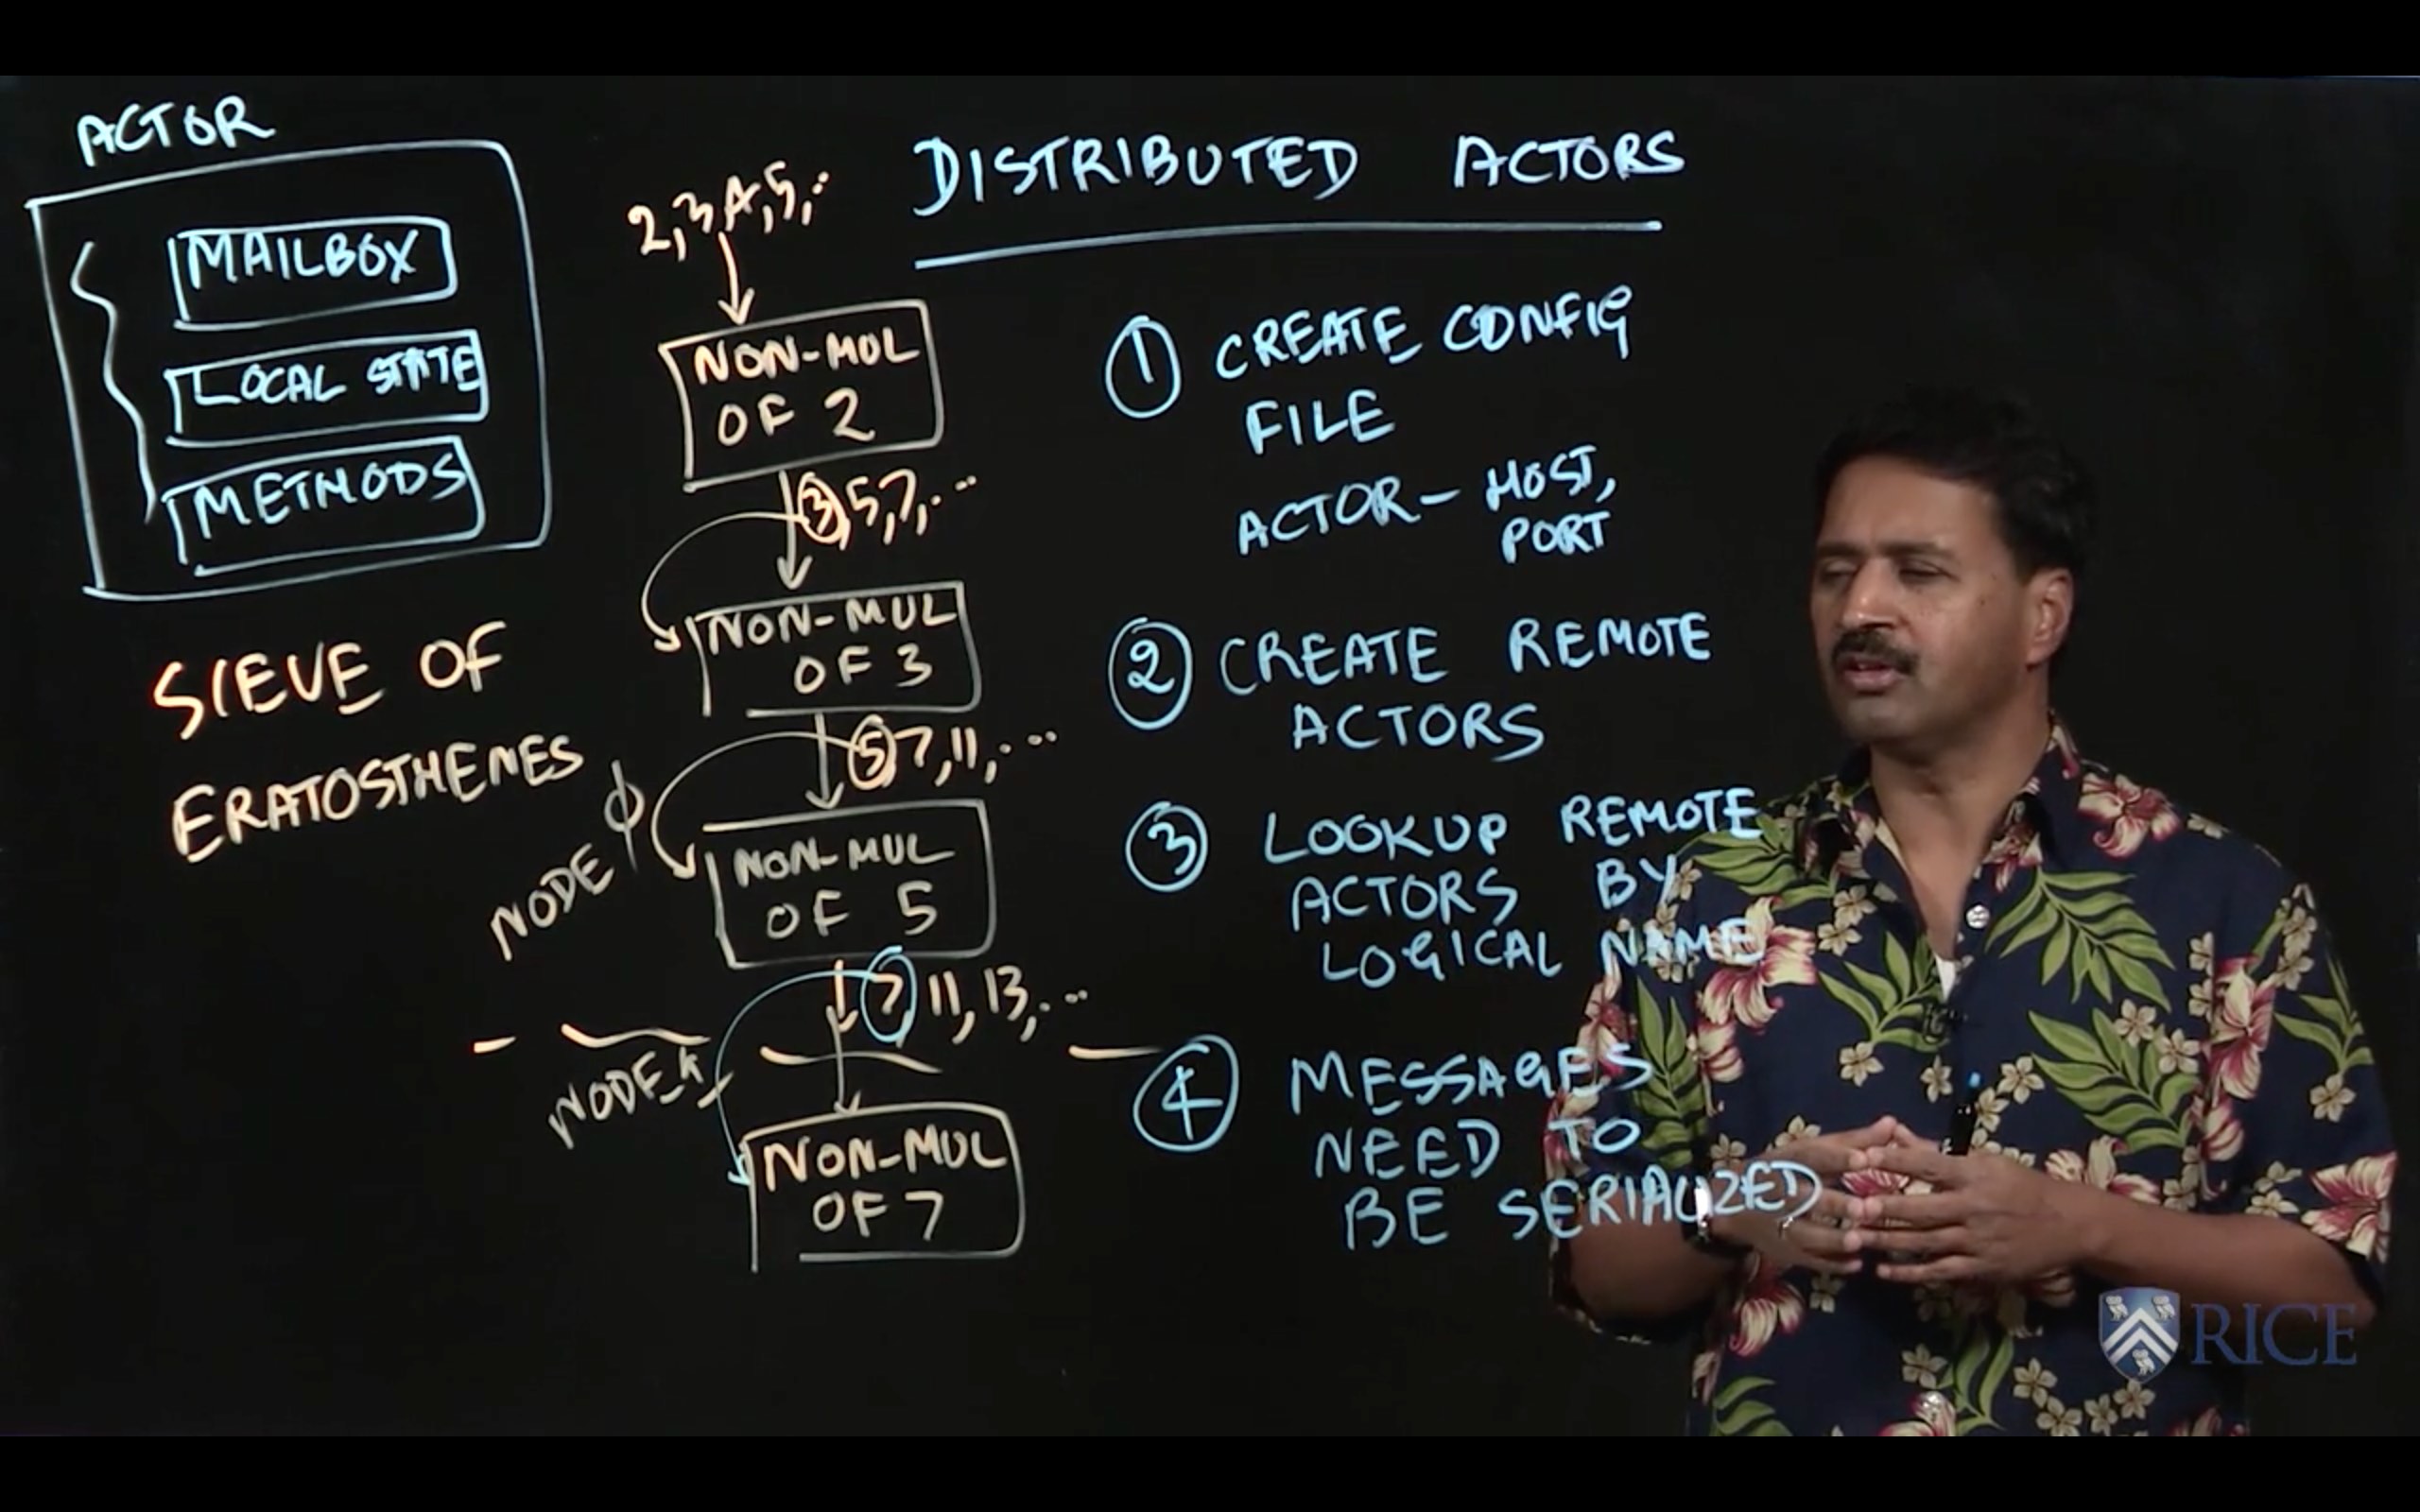 ACTOR
MAILBOX
LOCAL STATE
METHODS
SIEVE OF
ERATOSTHENES
2,3,4,5,..
NON-MUL
OF 2
3,5,7,...
NON-MUL
OF 3
5,7,11,...
NON-MUL
OF 5
NODE 0
7,11,13,...
NODE 1
NON-MUL
OF 7
DISTRIBUTED ACTORS
1 CREATE CONFIG
FILE
ACTOR - HOST,
PORT
2 CREATE REMOTE
ACTORS
3 LOOKUP REMOTE
ACTORS BY
LOGICAL NAME
4 MESSAGES
NEED TO
BE SERIALIZED
RICE